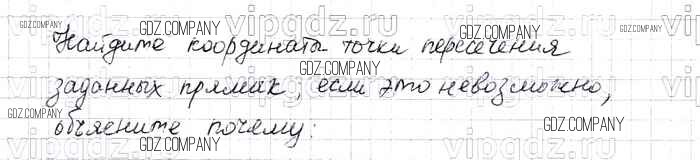 GDZ.COMPANY GDZ.COMPANY GDZ.COMPANY
vipgdz.ru vipgdz.ru
Найдите координаты точки пересечения
GDZ.COMPANY
заданных прямых, если это невозможно,
GDZ.COMPANY GDZ.COMPANY
vipgdz.ru vipgdz.ru
объясните почему:
GDZ.COMPANY GDZ.COMPANY